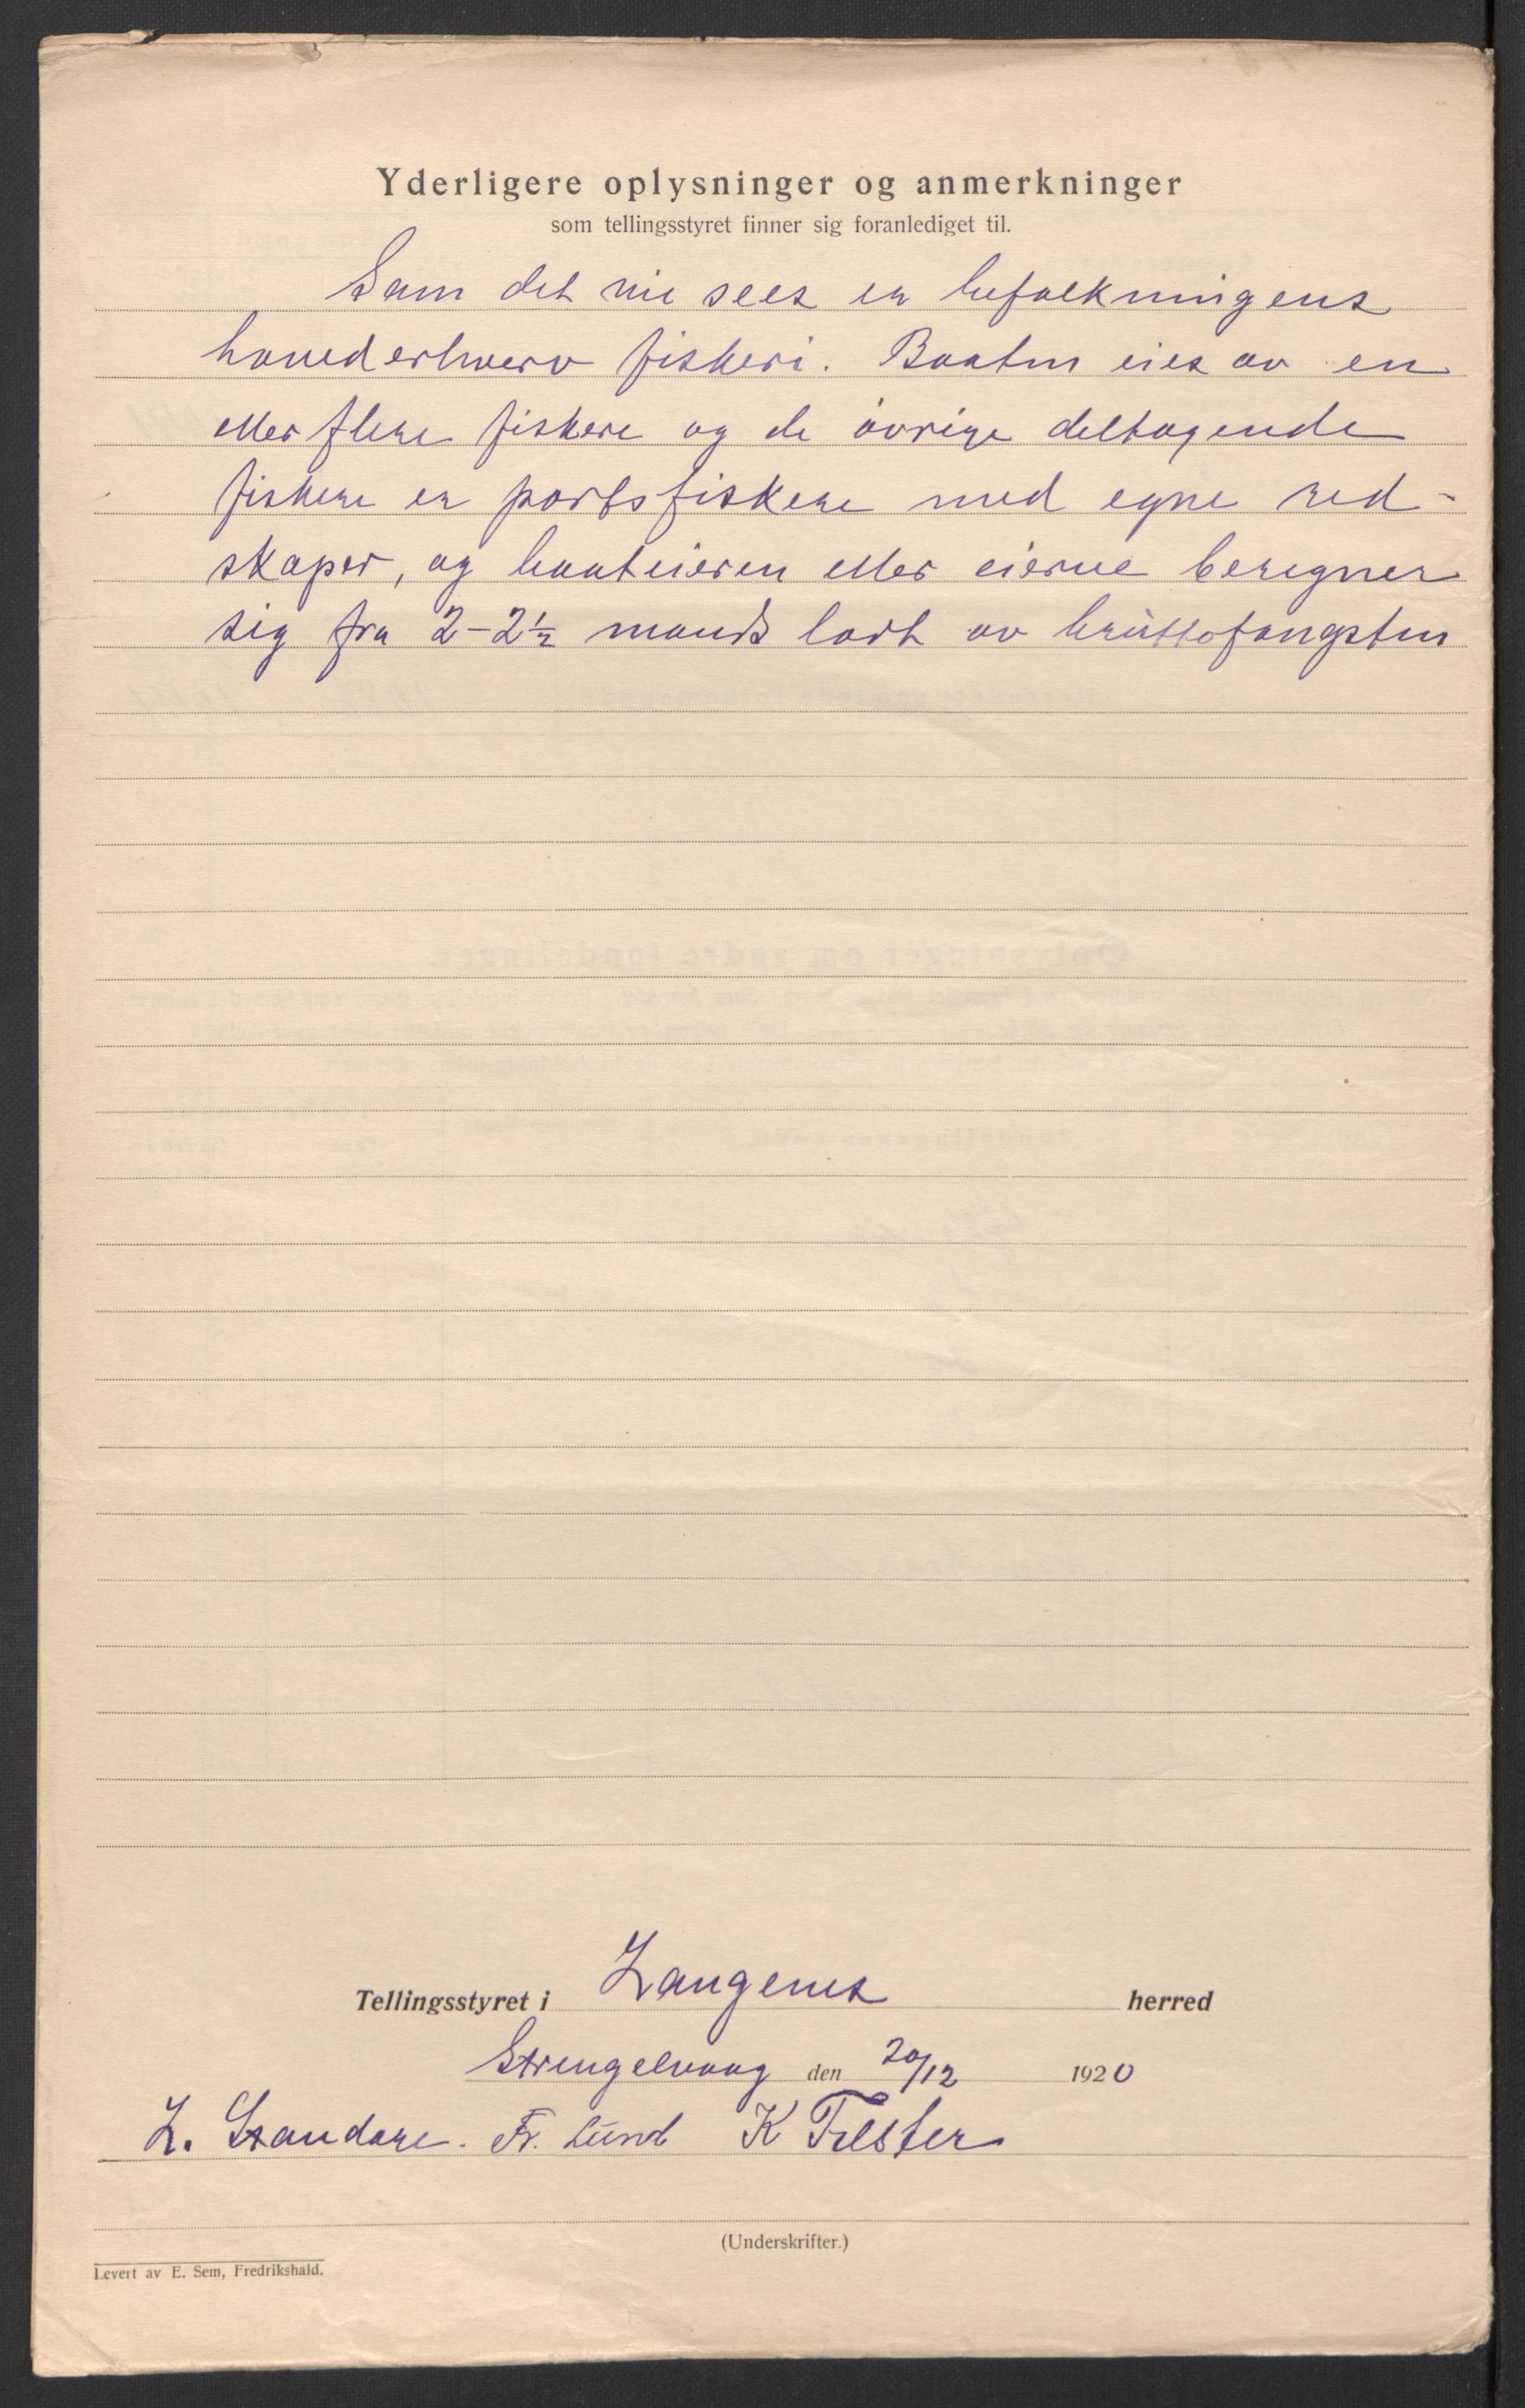 Yderligere oplysninger og anmerkninger
som tellingsstyret finner sig foranlediget til.
Som det vil sees er befolkningens
hovederhverv fiskeri. Baaten eies av en
eller flere fiskere og de övrige deltagende
fiskere er partsfiskere med egne red-
skaper, og baateieren eller eierne beregner
sig fra 2-2½ mands lodt av bruttofangsten
Tellingsstyret i Langenes herred
Strengelvaag den 20/12 1920
Fr. Lund K
(Underskrifter.)
Levert av E. Sem, Fredrikshald.